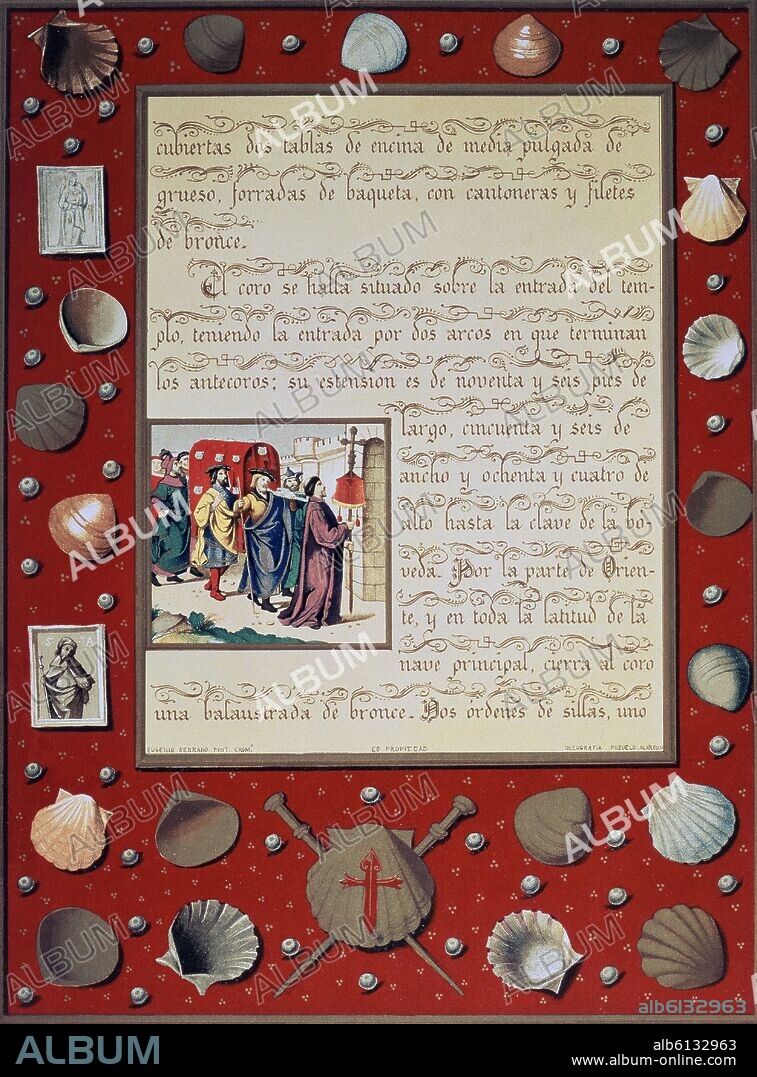 cubiertas dos tablas de encina de media pulgada de
grueso, forradas de baqueta, con cantoneras y filetes
de bronce.
El coro se halla situado sobre la entrada del tem-
plo, teniendo la entrada por dos arcos en que terminan
los antecoros; su estension es de noventa y seis pies de
largo, cincuenta y seis de
ancho y ochenta y cuatro de
alto hasta la clave de la bó-
veda. Por la parte de Orien-
te, y en toda la latitud de la
nave principal, cierra al coro
una balaustrada de bronce. Dos órdenes de sillas, uno
EUGENIO SERRANO PINT. CROM.
ES PROPIEDAD
OLEOGRAFIA POZUELO ALARCON
ALBUM
alb6132963
ALBUM
alb6132963
www.album-online.com